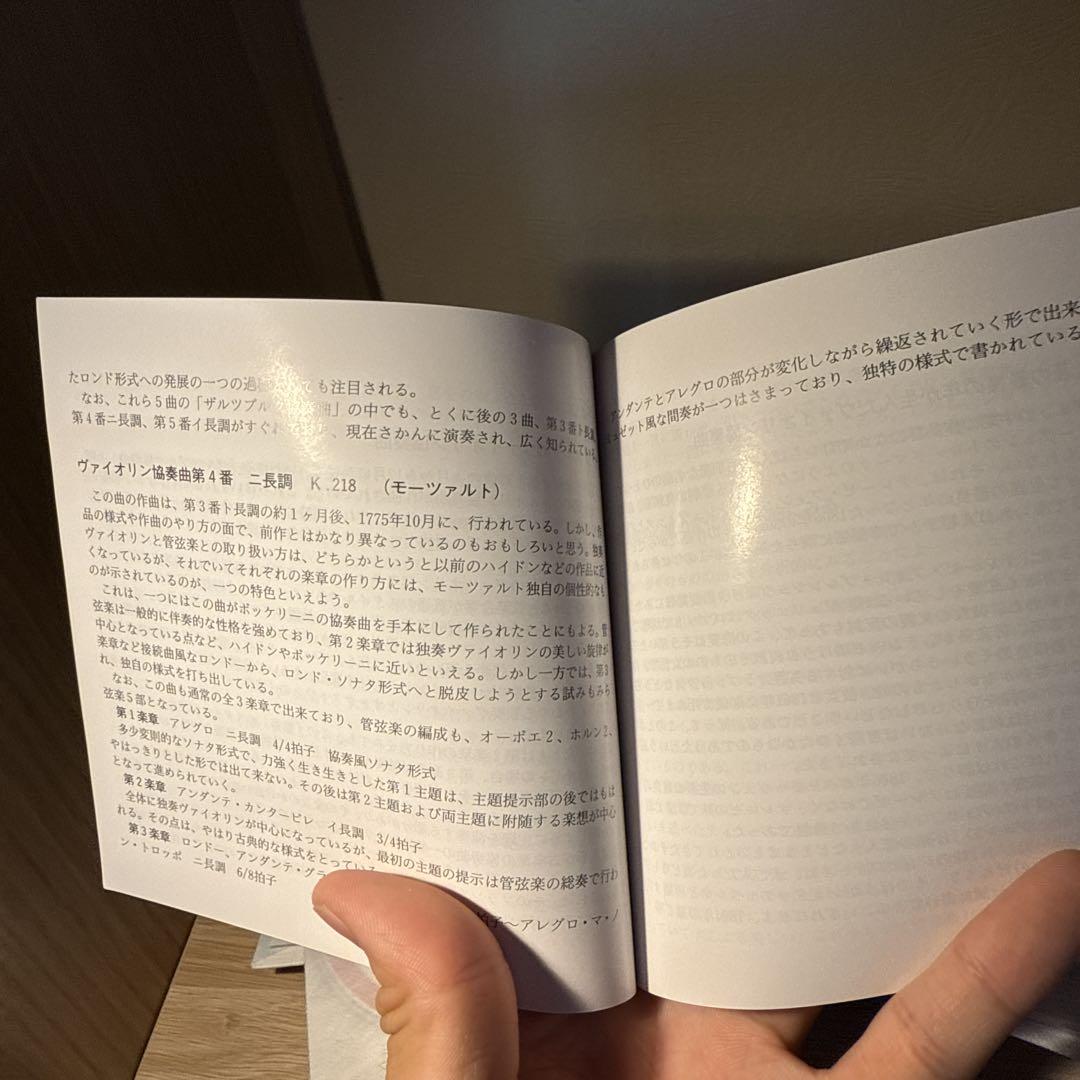 たロンド形式への発展の一つの過 も注目される。
なお、これら5曲の「ザルツブル 曲」の中でも、とくに後の3曲、第3番ト長調
第4番ニ長調、第5番イ長調がすぐれ 、現在さかんに演奏され、広く知られている
ヴァイオリン協奏曲第4番 ニ長調 K.218 (モーツァルト)
この曲の作曲は、第3番ト長調の約1ヶ月後、1775年10月に、行われている。しかし、作
品の様式や作曲のやり方の面で、前作とはかなり異なっているのもおもしろいと思う。独奏
ヴァイオリンと管弦楽との取り扱い方は、どちらかというと以前のハイドンなどの作品に近
くなっているが、それでいてそれぞれの楽章の作り方には、モーツァルト独自の個性的なも
のが示されているのが、一つの特色といえよう。
これは、一つにはこの曲がボッケリーニの協奏曲を手本にして作られたことにもよる。管
弦楽は一般的に伴奏的な性格を強めており、第2楽章では独奏ヴァイオリンの美しい旋律が
中心となっている点など、ハイドンやボッケリーニに近いといえる。しかし一方では、第3
楽章など接続曲風なロンドーから、ロンド・ソナタ形式へと脱皮しようとする試みもみら
れ、独自の様式を打ち出している。
なお、この曲も通常の全3楽章で出来ており、管弦楽の編成も、オーボエ2、ホルン2、
弦楽5部となっている。
第1楽章 アレグロ ニ長調 4/4拍子 協奏風ソナタ形式
多少変則的なソナタ形式で、力強く生き生きとした第1主題は、主題提示部の後ではもは
やはっきりとした形では出て来ない。その後は第2主題および両主題に附随する楽想が中心
となって進められていく。
第2楽章 アンダンテ・カンタービレ イ長調 3/4拍子
全体に独奏ヴァイオリンが中心になっているが、最初の主題の提示は管弦楽の総奏で行わ
れる。その点は、やはり古典的な様式をとっている
第3楽章 ロンドー、アンダンテ・グラ 拍子〜アレグロ・マ・ノ
ン・トロッポ ニ長調 6/8拍子
アンダンテとアレグロの部分が変化しながら繰返されていく形で出来
ミュゼット風な間奏が一つはさまっており、独特の様式で書かれている